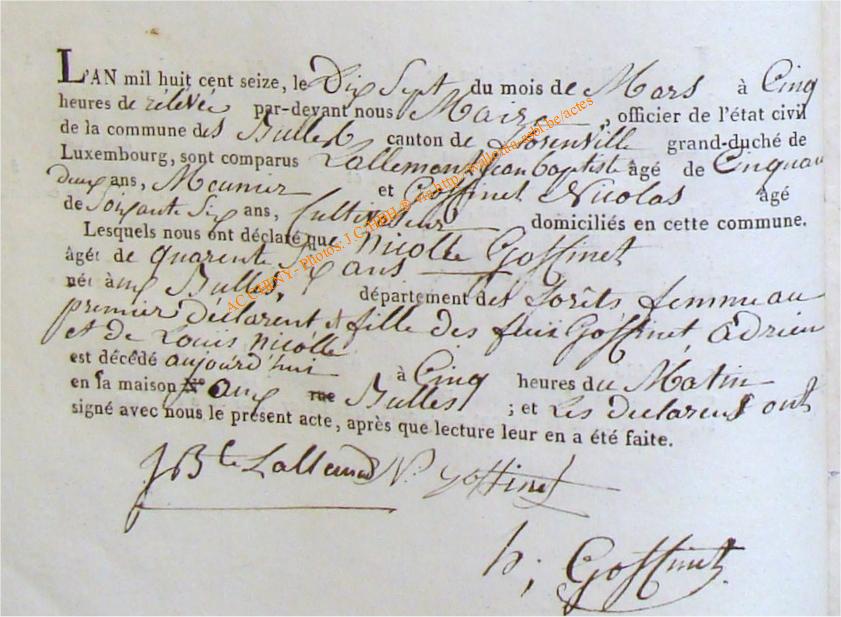 L'AN mil huit cent seize, le Dix Sept du mois de Mars à Cinq
heures de rélévée par-devant nous Maire, officier de l'état civil
de la commune des Bulles canton de grand-duché de
Luxembourg, sont comparus Lallemant Jean baptiste âgé de Cinquan
deux ans, Meunier et Goffinet Nicolas âgé
de Soixante Six ans, Cultivateur domiciliés en cette commune.
Lesquels nous ont déclaré que Nicolle Goffinet
âgée de quarente Six ans
née aux Bulles, département des Forêts femme au
premier déclarent et fille des feux Goffinet, adrien
et de Louis Nicolle
est décédé aujourd'hui à Cinq heures du Matin
en sa maison N.o aux rue Bulles ; et Les declarens ont
signé avec nous le présent acte, après que lecture leur en a été faite.
JBte Lallemand N. goffinet
h; Goffinet
AC - Photos: J.C. via http://wallonia.asbl.be/actes